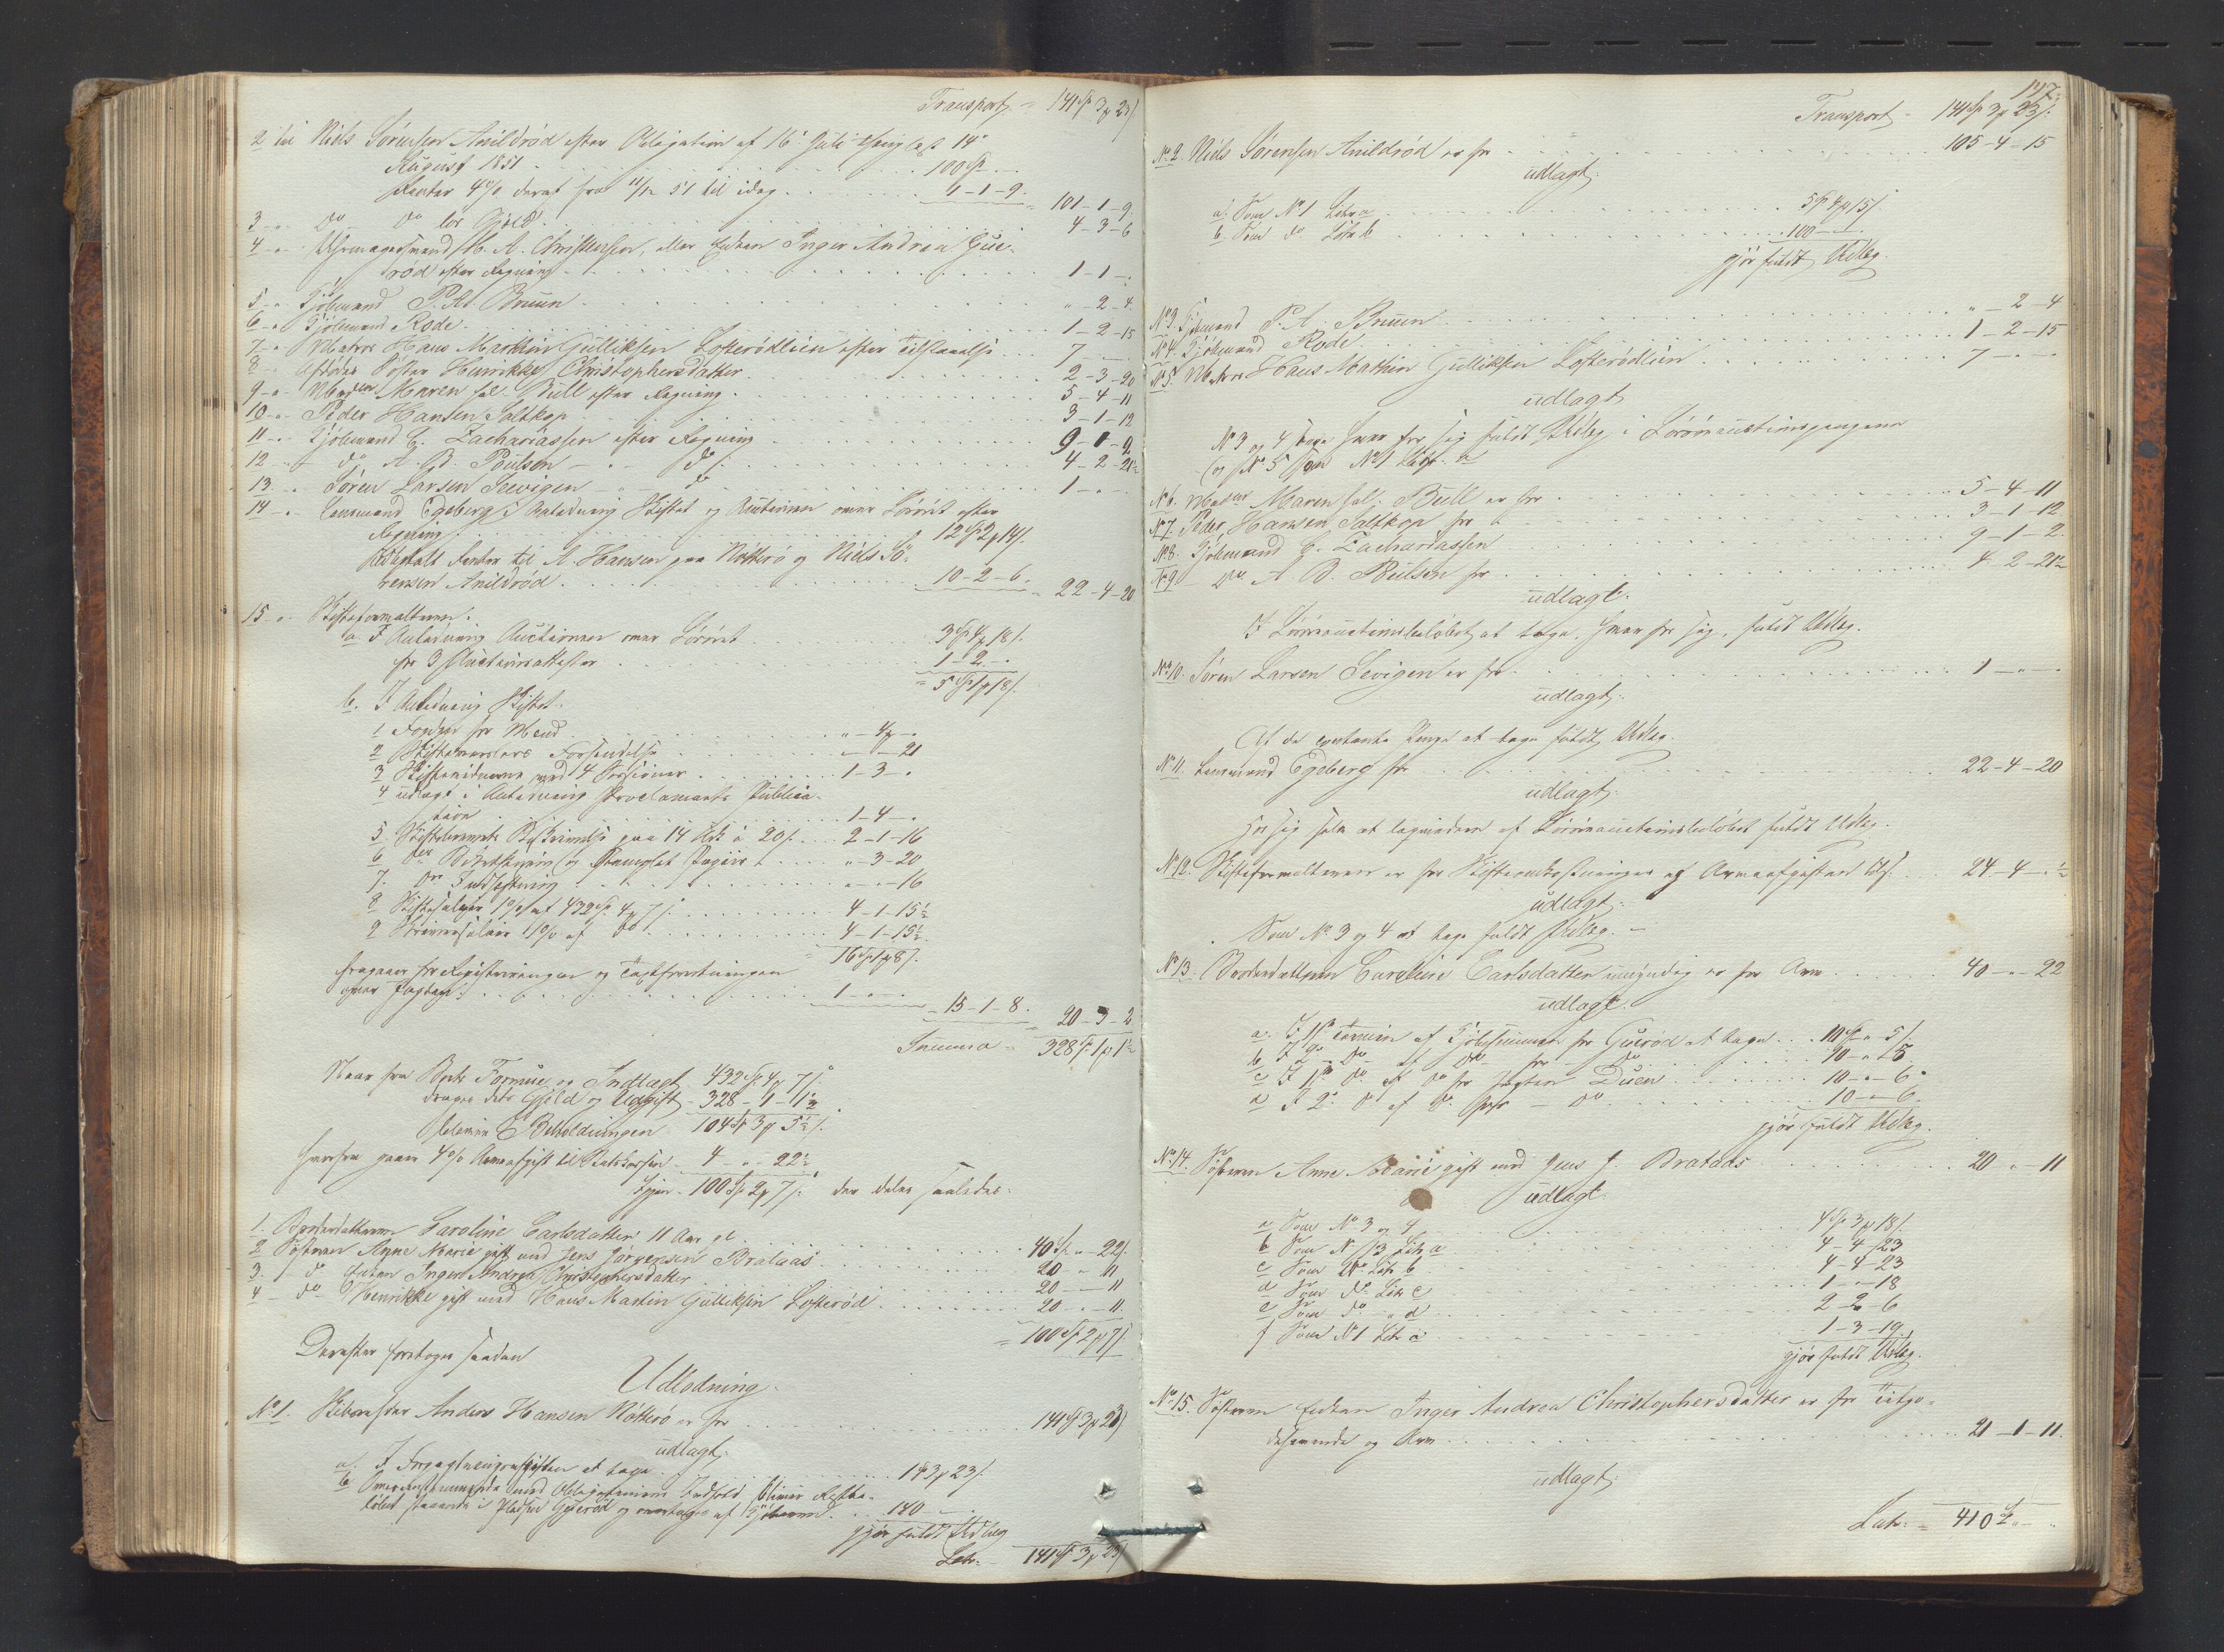 Transport = 141 Sp 3 μ 23 ß
2 til Niels Sörensen Anildröd efter Obligation af 16 Juli thinglæst 14
August 1851 100 Sp - -
Renter 4 % deraf fra 11/12 51 til idag 1-1-9. = 101-1-9
3 - " Do Do lös Gjeld 4-3-6
4 - " Uhrmagersvend H. A. Christensen, eller Enken Inger Andrea Gue-
röd efter Regning 1-1-"
5 - " Kjöbmand P. A. Bruun " - 2 - 4
6 - " Kjöbmand Rode 1-2-15
7 - " Matros Hans Martin Gulliksen Lofterödlien efter Tilstaaelse 7 - -
8 - " Afdödes Söster Henrikke Christophersdatter 2-3-20
9 - " Madam Maren sal. Bull efter Regning 5-4-11
10 - " Peder Hansen Saltkop 3-1-12
11 - " Kjöbmand C. Zachariassen efter Regning 9-1-2
12 - " - do A. B. Poulsen - " - do 4-2-21½
13 - " Sören Larsen Sevigen - " - do 1-"-
14 - " Lensmand Egeberg i Anledning Skiftet og Auctionen over Lösöret efter
Regning 12 Sp 2 μ 14 ß
Udbetalt Renter til A. Hansen paa Nötterö og Niels Sö-
rensen Anildröd 10-2-6. = 22-4-20
15 - " Skifteforvalteren:
a. I Anledning Auctionen over Lösöret 3 Sp 4 μ 18 ß
for 3 Auctionsattester 1-2-"
= 5 Sp 1 μ 18 ß
b. I Anledning Skiftet.
1 Fogden for Meud " - 4 μ - "
2 Skiftebrevets Forsendelse " - " - 21
3 Skiftevidnerne med 4 Sessioner 1-3-"
4 udlagt i Anledning Proclamaets Publica-
tion 1-4-"
5. Skiftebrevets Beskrivelse paa 14 Ark à 20 ß 2-1-16
6 Do Beskrivelse og stemplet Papiir " - 3 - 20
7. Do Indheftning " - " - 16
8 Skiftesalair 1 % af 432 Sp 4 μ 7 ß 4-1-15½
9 Skriversalair 1 % af do 4-1-15½
16 Sp 1 μ 8 ß
fragaaer for Registreringen og Taxtforretningen
over Jagten 1 - " - " = 15-1-8. = 20-3-2
Summa = 328 Sp 1 μ 1½
Naar fra Boets Formue og Indtægt 432 Sp 4 μ 7 ß
drages dets Gjeld og Udgift 328-1-1½
bliver Beholdningen 104 Sp 3 μ 5½ ß
hvorfra gaaer 4 % Arveafgift til Statskassen 4 - " - 22½
Igjen 100 Sp 2 μ 7 ß der deles saaledes:
1. Broderdatteren Caroline Carlsdatter 11 Aar gl. 40 Sp " - 22 ß
2 Sösteren Anne Marie gift med Jens Jörgensen Brataas 20 - " 11
3. - do Enken Inger Andrea Christophersdatter 20 - " - 11
4 - do Henrikke gift med Hans Martin Gulliksen Lofteröd 20 - " - 11
= 100 Sp 2 μ 7 ß
Derefter foretoges saadan
Udlodning.
No 1. Skibsreder Anders Hansen Nötterö er for 141 Sp 3 μ 23 ß
udlagt:
a. I at tage 1 Sp 3 μ 23 ß
b Overenstemmende med Obligationens Indhold bliver Restbe-
löbet staaende i Pladsen Gueröd og overtages af Kjöberen 140 -
gjör fuldt Udlæg
Lat. - 141 Sp 3 μ 23 ß
197.
Transport - 141 Sp 3 μ 23 ß
No 2. Niels Sörensen Anildröd er for 105-4-15
udlagt:
a. Som No 1 Litra a 5 Sp 4 μ 15 ß
b. Som do Litr b 100 -
gjör fuldt Udlæg.
No 3. Kjöbmand P. A. Bruun " - 2 - 4
No 4. Kjöbmand Rode 1-2-15
No 5. Matros Hans Mathin Gulliksen Lofterödlien 7 - " -
udlagt
No 3 og 4 hver for sig fuldt Udlæg i Lösöreauctionspengene
og No 5 som No 1 Litr. a
No 6. Madam Maren sal. Bull er for 5-4-11
No 7. Peder Hansen Saltkop for 3-1-12
No 8. Kjöbmand C. Zachariassen 9-1-2.
No 9 Do A. B. Poulsen for 4-2-21½
udlagt:
I Lösöreauctionsbelöbet at tage, hver for sig, fuldt Udlæg.
No 10. Sören Larsen Sevigen er for 1 - " -
udlagt:
Af de contante Penge at tage fuldt Udlæg.
No 11. Lensmand Egeberg for 22-4-20
udlagt:
hos sig selv at af Lösöreauctionsbelöbet fuldt Udlæg.
No 12. Skifteforvalteren er for Skifteomkostninger og Arveafgiften 24-4-"½
udlagt:
Som No 3 og 4 at tage fuldt Udlæg. -
No 13. Broderdatteren Caroline Carlsdatter umyndig er for Arv 40 - " - 22
udlagt:
a. I 1ste Termin af Kjöbesummen for Gueröd at tage 10 Sp " 5 ß
b. I 2den Do af Do for Do 10 - " - 5
c I 1ste do. af do for Jagten Duen 10 - " - 6
d I 2den do af do for - do 10 - " - 6
gjör fuldt Udlæg.
No 14. Sösteren Anne Marie gift med Jens J. Brataas 20 " - 11
udlagt:
a Som No 3 og 4 4 Sp 3 μ 18 ß
b Som No 13 Litr a 4-4-23
c Som do Litr b 4-4-23
d Som do Litr c 1-"-18
e Som do " d 2-2-6
f Som No 1 Litr a 1-3-19
gjör fuldt Udlæg.
No 15. Sösteren Enken Inger Andrea Christophersdatter er for Tilgo-
dehavende og Arv 21-1-11.
udlagt:
Lat. = 410 Sp " - "